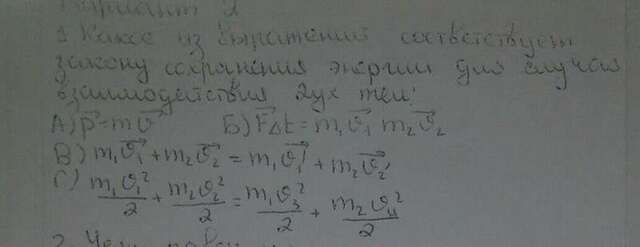 Вариант 2
1 Какое из выражений соответствует
закону сохранения энергии для случая
взаимодействия двух тел:
А) p⃗=mϑ⃗ Б) F⃗Δt = m₁ϑ₁⃗ m₂ϑ₂⃗
В) m₁ϑ₁⃗ + m₂ϑ₂⃗ = m₁ϑ₁⃗' + m₂ϑ₂⃗'
Г) m₁ϑ₁²/2 + m₂ϑ₂²/2 = m₁ϑ₃²/2 + m₂ϑ₄²/2
2. Чему